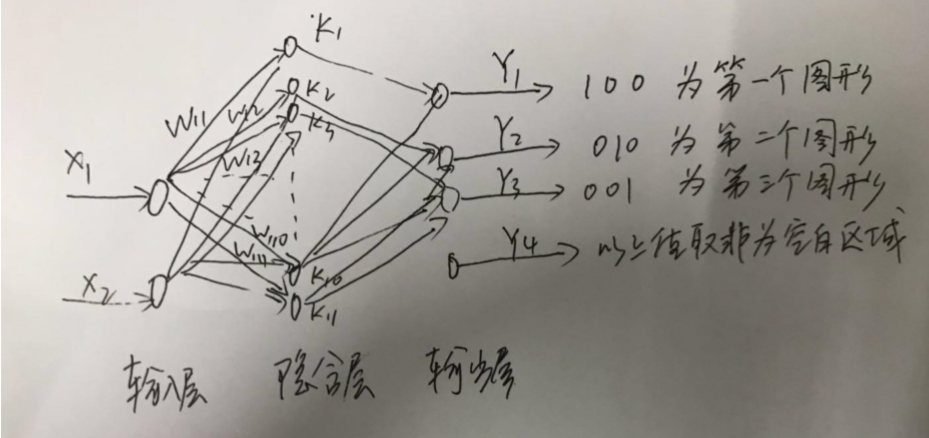 K1
K2
K3
W11
W12
W13
X1
W110
W111
X2
K10
K11
Y1 100 为第一个图形
Y2 010 为第二个图形
Y3 001 为第三个图形
Y4 以上值取非为空白区域
输入层 隐含层 输出层